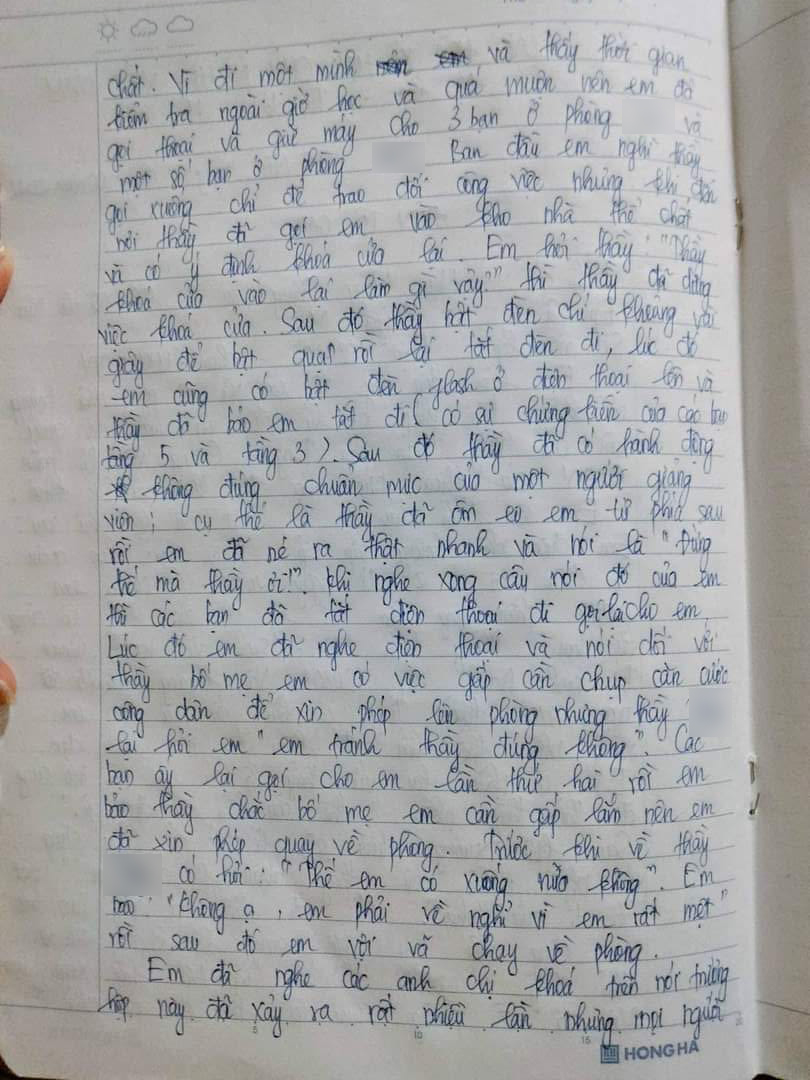 chất. Vì đi một mình và thấy thời gian
kiểm tra ngoài giờ học và quá muộn nên em đã
gọi thoại và giữ máy cho 3 bạn ở phòng và
một số bạn ở phòng Ban đầu em nghĩ thầy
gọi xuống chỉ để trao đổi công việc nhưng khi đến
nơi thầy đã gọi em vào kho nhà thể chất
và có ý định khoá cửa lại. Em hỏi thầy: "Thầy
khoá cửa vào lại làm gì vậy" thì thầy đã dừng
việc khoá cửa. Sau đó thầy bật đèn chỉ khoảng vài
giây để bật quạt rồi lại tắt đèn đi, lúc đó
em cũng có bật đèn flash ở điện thoại lên và
thầy đã bảo em tắt đi (có sự chứng kiến của các bạn
tầng 5 và tầng 3). Sau đó thầy đã có hành động
không đúng chuẩn mực của một người giảng
viên; cụ thể là thầy đã ôm eo em từ phía sau
rồi em đã né ra thật nhanh và nói là "Đừng
thế mà thầy ơi!". Khi nghe xong câu nói đó của em
thì các bạn đã tắt điện thoại đi gọi lại cho em
Lúc đó em đã nghe điện thoại và nói dối với
thầy bố mẹ em có việc gấp cần chụp căn cước
công dân để xin phép lên phòng nhưng thầy
lại hỏi em "em tránh thầy đúng không". Các
bạn ấy lại gọi cho em lần thứ hai rồi em
bảo thầy chắc bố mẹ em cần gấp lắm nên em
đã xin phép quay về phòng. Trước khi về thầy
có hỏi: "Thế em có xuống nữa không". Em
bảo: "Không ạ, em phải về nghỉ vì em rất mệt"
rồi sau đó em vội vã chạy về phòng.
Em đã nghe các anh chị khoá trên nói trường
hợp này đã xảy ra rất nhiều lần nhưng mọi người
5 10 15
HONG HA